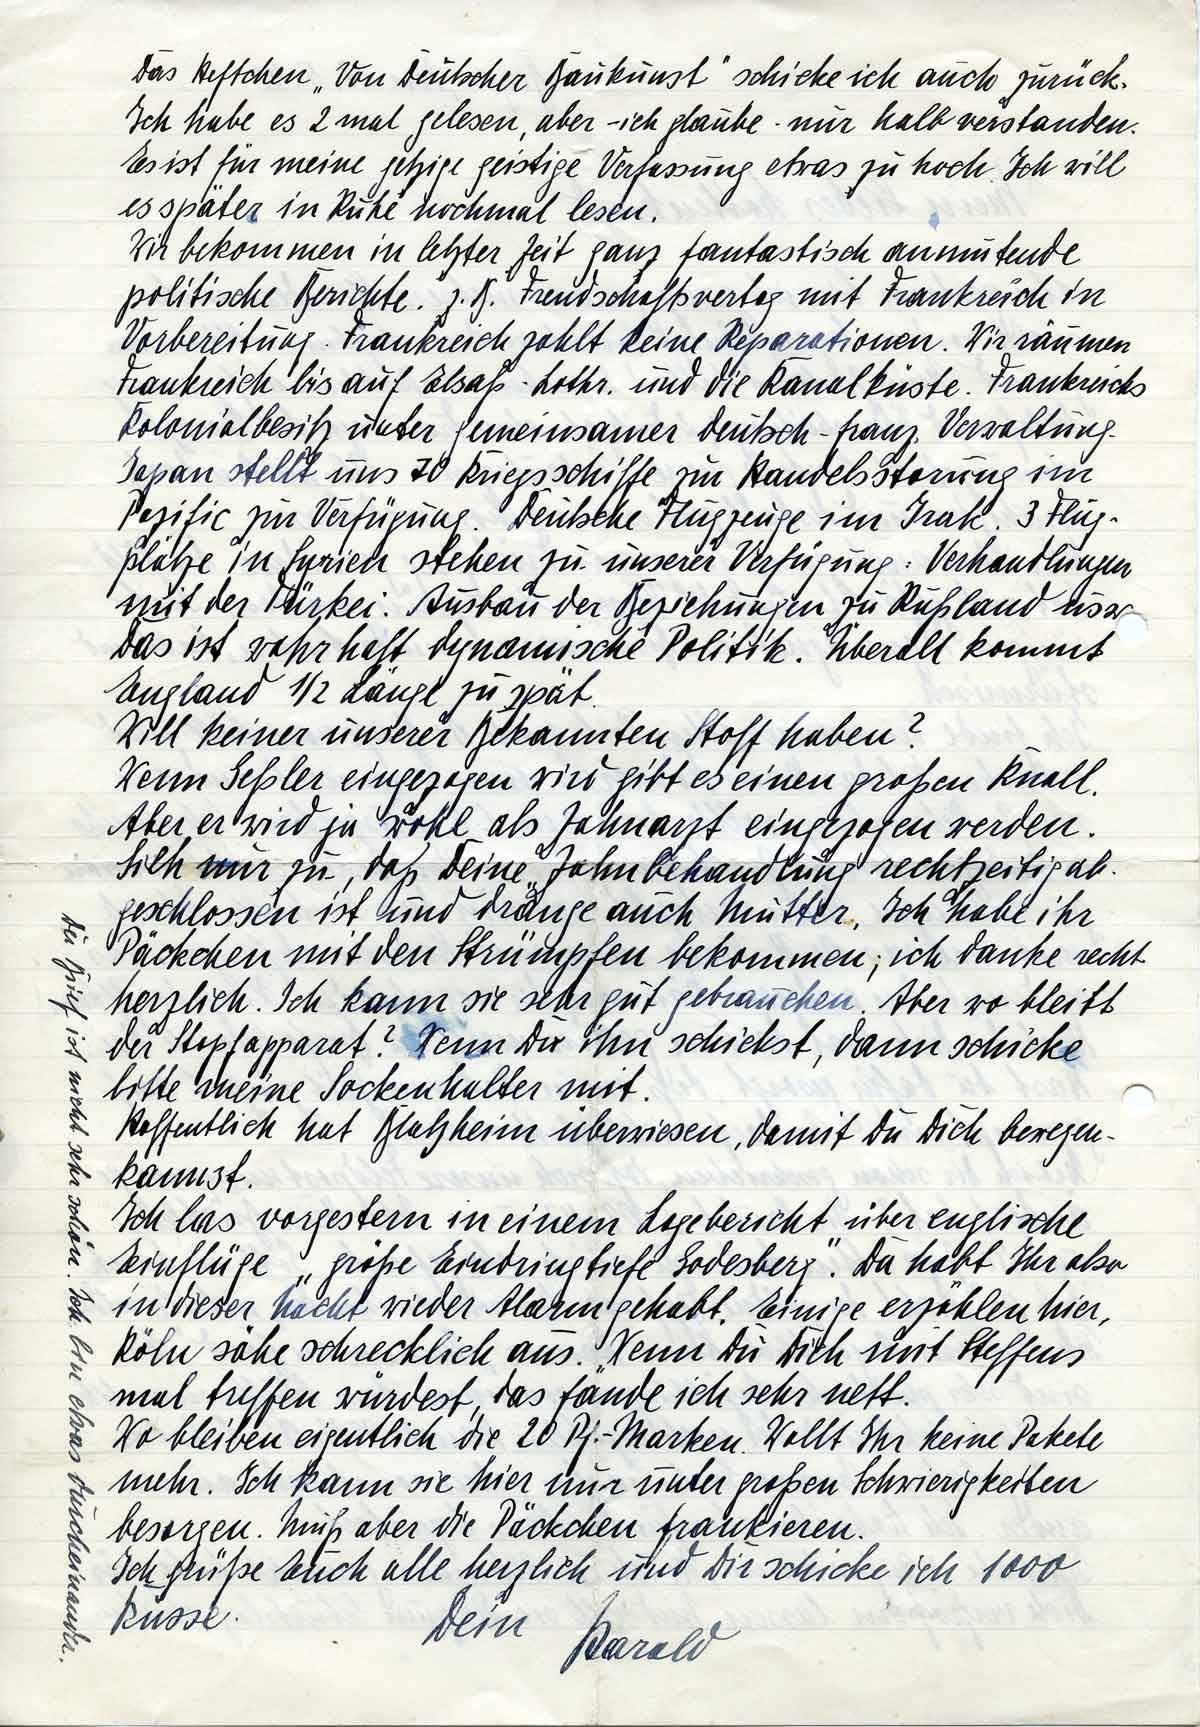 Das Heftchen „Von Deutscher Baukunst" schicke ich auch zurück.
Ich habe es 2 mal gelesen, aber - ich glaube - nur halb verstanden.
Es ist für meine jetzige geistige Verfassung etwas zu hoch. Ich will
es später in Ruhe nochmal lesen.
Wir bekommen in letzter Zeit ganz fantastisch anmutende
politische Berichte. z. B. Freundschaftsvertag mit Frankreich in
Vorbereitung. Frankreich zahlt keine Reparationen. Wir räumen
Frankreich bis auf Elsaß-Lothr. und die Kanalküste. Frankreichs
Kolonialbesitz unter gemeinsamer deutsch-franz. Verwaltung.
Japan stellt uns 70 Kriegsschiffe zur Handelsstörung im
Pazific zur Verfügung. Deutsche Flugzeuge im Irak. 3 Flug-
plätze in Syrien stehen zu unserer Verfügung. Verhandlungen
mit der Türkei. Ausbau der Beziehungen zu Rußland usw
Das ist wahrhaft dynamische Politik. Überall kommt
England 1/2 Länge zu spät.
Will keiner unserer Bekannten Stoff haben?
Wenn Geßler eingezogen wird gibt es einen großen Knall.
Aber er wird ja wohl als Zahnarzt eingezogen werden.
Sieh nur zu, daß Deine Zahnbehandlung rechtzeitig ab-
geschlossen ist und dränge auch Mutter. Ich habe ihr
Päckchen mit den Strümpfen bekommen; ich danke recht
herzlich. Ich kann sie sehr gut gebrauchen. Aber wo bleibt
der Stopfapparat? Wenn Du ihn schickst, dann schicke
bitte meine Sockenhalter mit.
Hoffentlich hat Blatzheim überwiesen, damit Du Dich bewegen
kannst.
Ich las vorgestern in einem Lagebericht über englische
Einflüge „große Eindringtiefe Godesberg". Da habt Ihr also
in dieser Nacht wieder Alarm gehabt. Einige erzählen hier,
Köln sähe schrecklich aus. Wenn Du Dich mit Steffens
mal treffen würdest, das fände ich sehr nett.
Wo bleiben eigentlich die 20 Pf.-Marken. Wollt Ihr keine Pakete
mehr. Ich kann sie hier nur unter großen Schwierigkeiten
besorgen. Muß aber die Päckchen frankieren.
Ich grüße Euch alle herzlich und Dir schicke ich 1000
Küsse.
Dein
Harald
Der Brief ist nicht sehr schön. Ich bin etwas durcheinander.